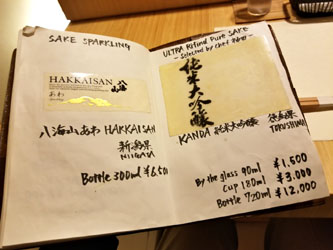 SAKE SPARKLING
HAKKAISAN 八海山
あわ
八海山あわ HAKKAISAN
新潟県
NIIGATA
Bottle 300ml
ULTRA Refined Pure SAKE
- Selected by Chef
純米大吟醸
KANDA 純米大吟醸
徳島県
TOKUSHIMA
By the glass 90ml ¥1,500
Cup 180ml ¥3,000
Bottle 720ml ¥12,000